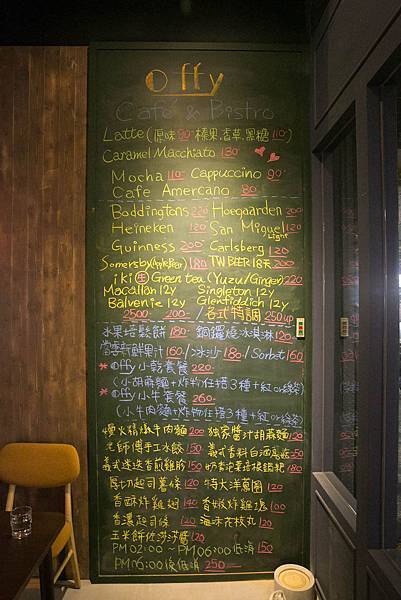 Offy
Café & Bistro
Latte (原味90 榛果,香草,黑糖110)
Caramel Macchiato 130
Mocha 110 Cappuccino 90
Cafe Americano 80
Boddingtons 220 Hoegaarden 200
Heineken 120 San Miguel Light 120
Guinness 200 Carlsberg 120
Somersby(Apple Beer) 180 TW BEER 18天 200
iki 生 Green tea (Yuzu/Ginger) 220
Macallan 12y Singleton 12y
Balvenie 12y Glenfiddich 12y
2500 200 / 各式特調 250up
水果塔鬆餅 180 銅鑼燒冰淇淋 120
當季新鮮果汁 160 / 冰沙 180 / Sorbet 160
*Offy小乾套餐 220
(小胡麻麵+炸物任搭3種+紅or綠茶)
*Offy小牛套餐 260
(小牛肉麵+炸物任搭3種+紅or綠茶)
牛肉麵 200 獨家醬汁胡麻麵 120
老師傅手工水餃 150 義式香料白酒 150
義式迷迭香煎雞 150 奶香 180
厚切起司薯條 120 特大洋蔥圈 120
香酥炸雞翅 140 100
香濃起司條 120 海味花枝丸 120
玉米餅佐莎莎醬 120
PM02:00 ~ PM06:00低消 150
PM06:00後低消 250